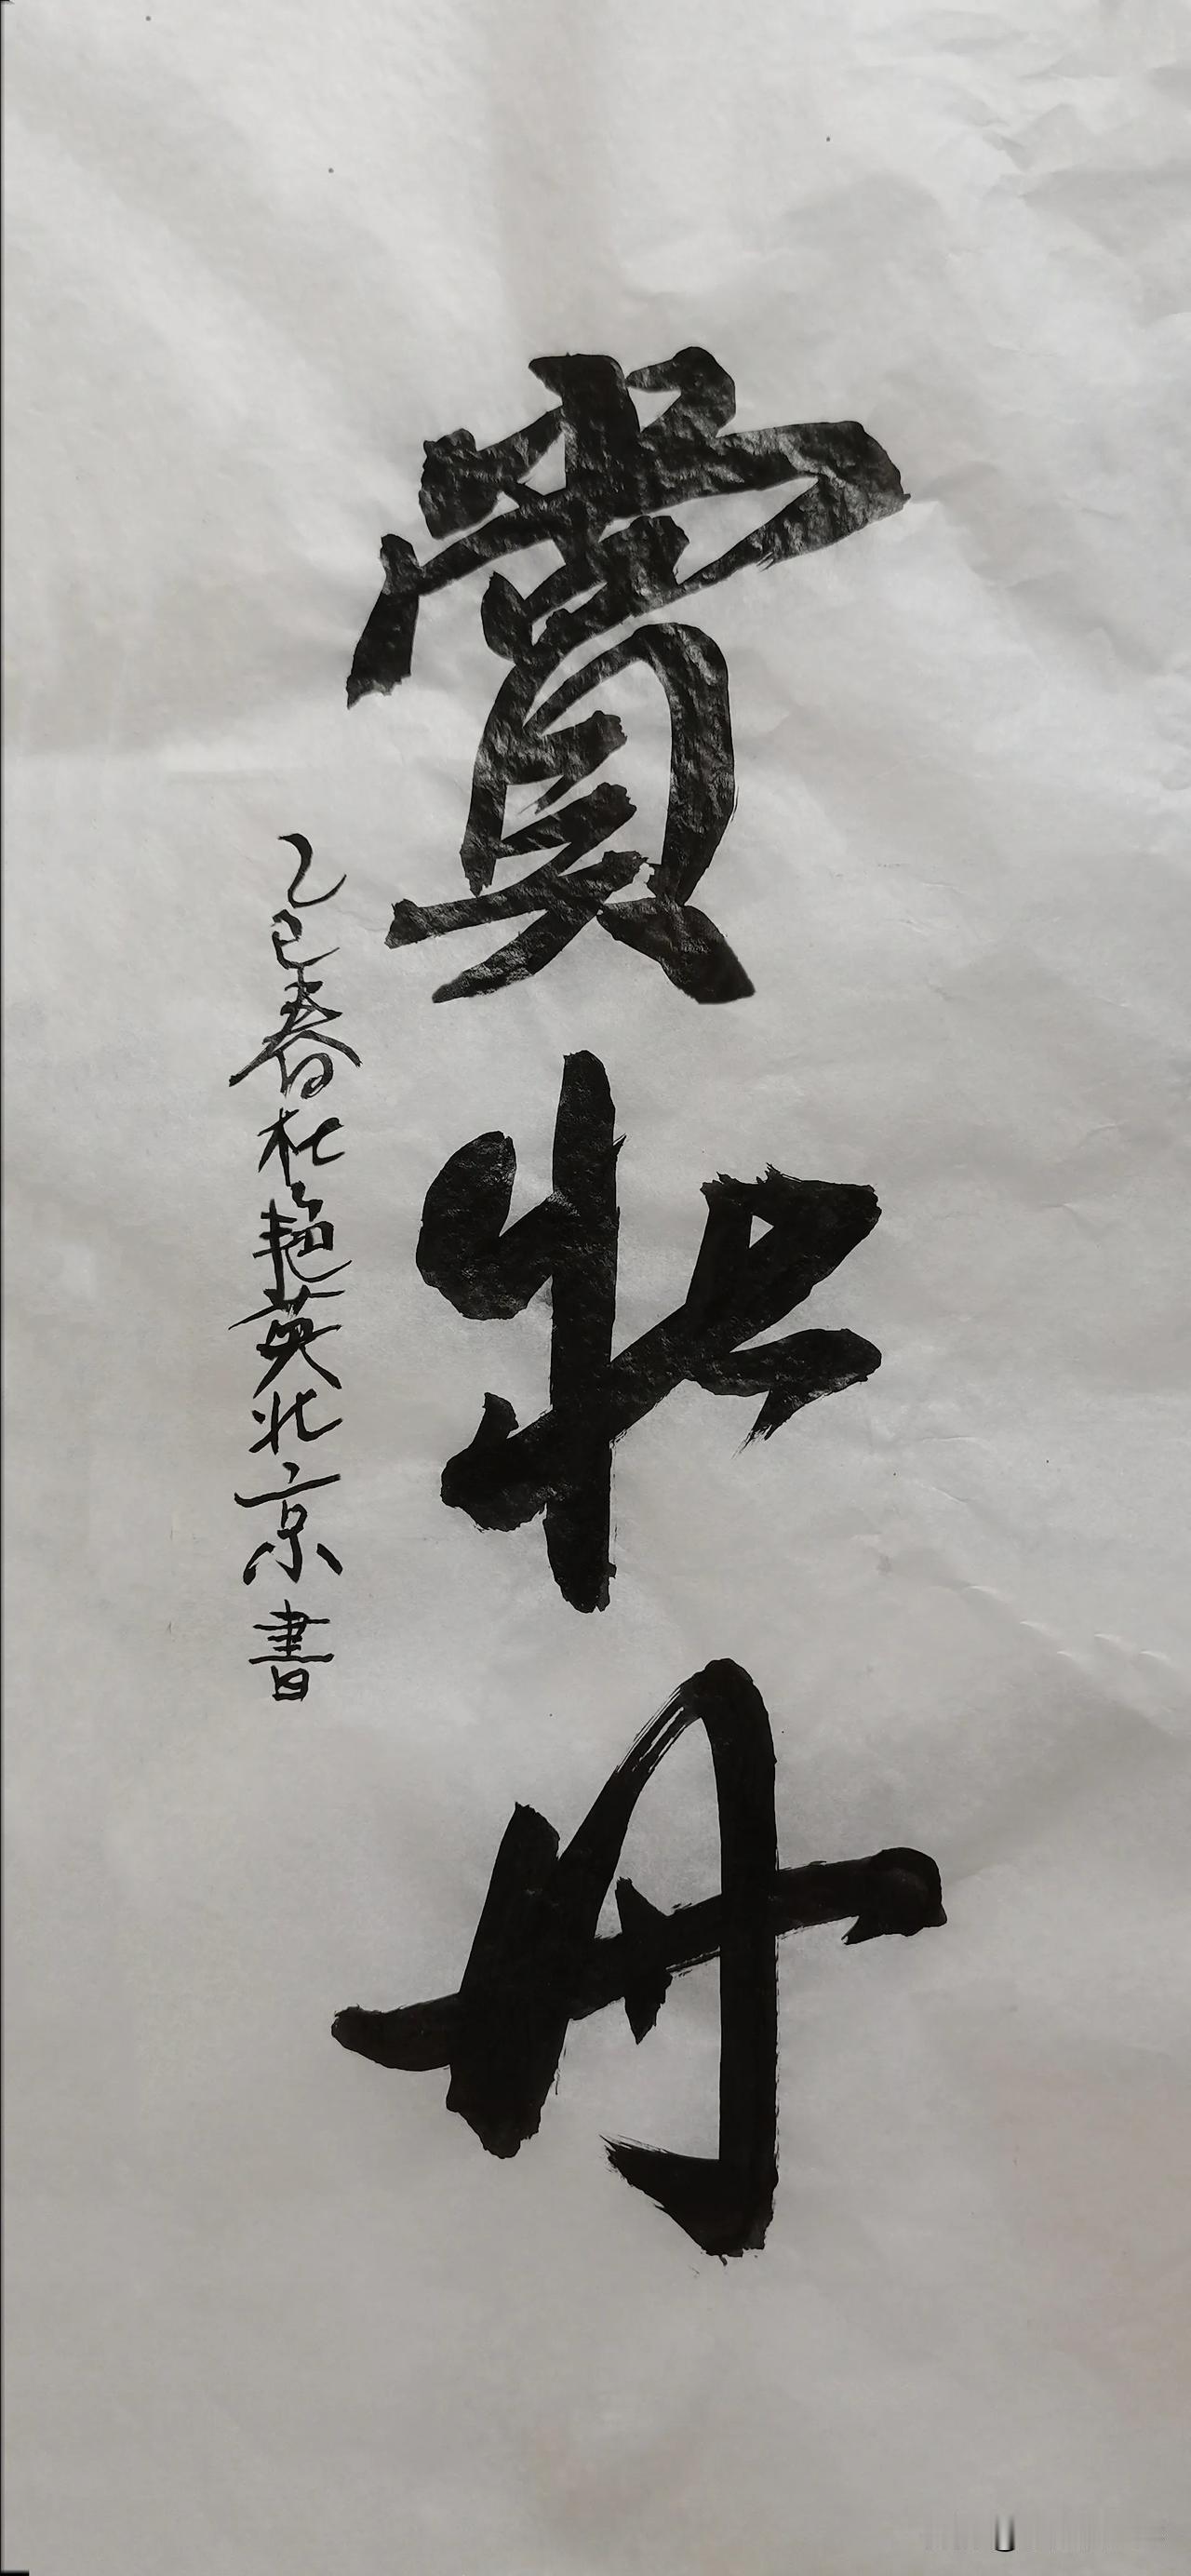 賞牡丹
乙巳春杜艳英北京書